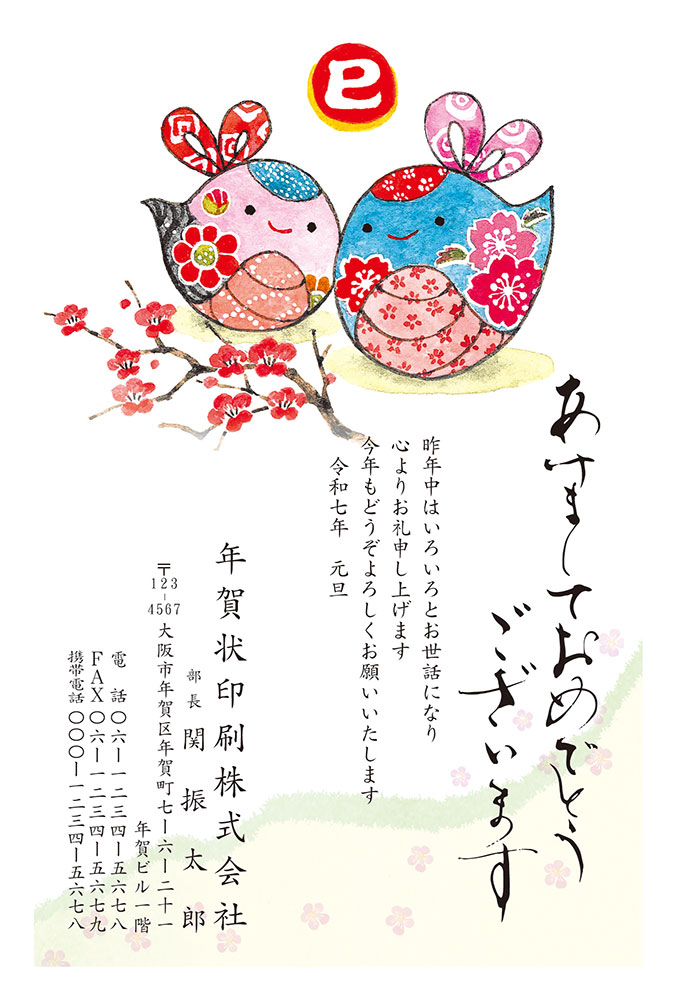 巳
あけましておめでとう
ございます
昨年中はいろいろとお世話になり
心よりお礼申し上げます
今年もどうぞよろしくお願いいたします
令和七年　元旦
年賀状印刷株式会社
部長　関振太郎
〒123-4567　大阪市年賀区年賀町七ー六ー二十一
年賀ビル一階
電　話〇六ー一二三四ー五六七八
ＦＡＸ〇六ー一二三四ー五六七九
携帯電話〇〇〇ー一二三四ー五六七八